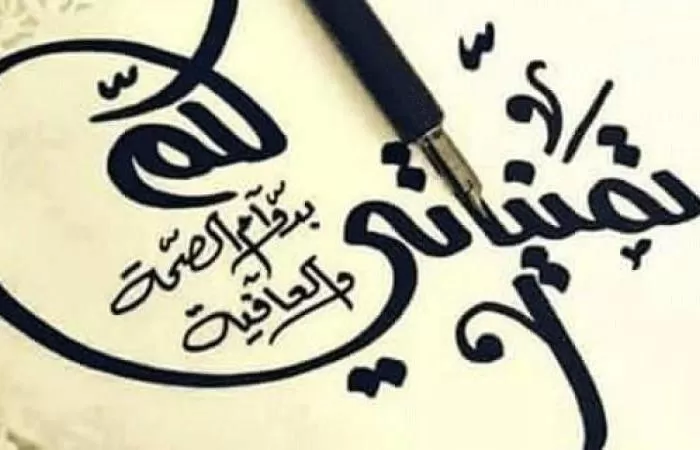 تمنياتي لكم
بدوام الصحة
والعافية